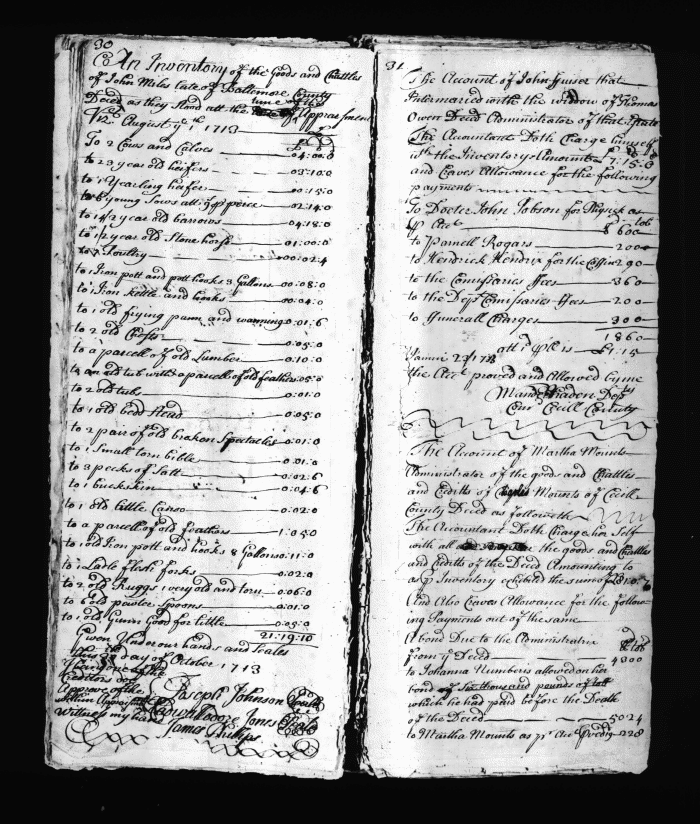 30
An Inventory of the Goods and Chattles
of John Miles late of Baltemore County
Deced as they Stand att the time of the
Appraisment
Vizt August ye 1th 1713
To 2 Cows and Calves 04:00:0
to 2 3 year old heifers 03:10:0
to 1 Yearling heifer 00:15:0
to 6 young Sows att 9s pr peice 02:14:0
to 1 4/2 year old barrows 04:18:0
to 1 1/2 year old Stone horse 01:00:0
to 7 Poultry 00:02:4
to 1 Iron pott and pott hooks 3 Gallons 00:08:0
to 1 Iron kettle and hooks 00:04:0
to 1 old frying pann and warming 0:01:6
to 2 old Chests 0:05:0
to a parcell of old Lumber 0:10:0
to an old tub with a parcell of old feathers 05:0
to 2 old tubs 0:01:0
to 1 old bedd Stead 0:05:0
to 2 pair of old braken Spectacles 0:01:0
to 1 Small torn bible 0:01:0
to 3 pecks of Salt 0:02:6
to 1 buckskin 0:04:6
to 1 old little Canoo 0:02:0
to a parcell of old feathers 1:05:0
to 1 old Iron pott and hooks 8 Gallons 0:11:0
to 1 Ladle flesh forks 0:02:0
to 2 old Ruggs 1 very old and torn 0:06:0
to 6 old powter Spoons 0:01:0
to 1 old Gunn Good for little 0:05:0
21:19:10
Given Under our hands and Seales
this day of October 1713
Creditors doe
Approve of the
Witness my hand
Joseph Johnson Seale
Jones Seale
James Phillips
31
The Account of John Huiser that
Intermaried with the widow of Thomas
Owen Deced Administrator of that Estate
The Accountant Doth Charge himself
with the Inventory Amounts 7:15:0
and Craves Allowance for the following
payments
To Docter John Jobson for Physick as
pr Acct 600
to Parnell Rogars 200
to Hendrick Hendrix for the Coffin 290
to the Comissaries ffees 360
to the Dept Comissaries ffees 200
to Funerall Charges 300
1860
att 1d pr lb is £7:15
the Acct proved and Allowed by me
Dept
Com Cecill County
The Account of Martha Mounts
Administrator of the goods and Chattles
and Credits of Mounts of Cecill
County Deced as followeth
The Accountant Doth Charge her Self
with all the goods and Chattles
and Credits of the Deced Amounting to
as pr Inventory exhibited the sum of
And Also Craves Allowance for the follow-
ing Payments out of the same
A bond Due to the Administratrix
from ye Deced 4300
to Johanna Numberis allowed on her
bond of Six thousand pounds of tob
which he had paid before the Death
of the Deced 5024
to Martha Mounts as pr Acct 228